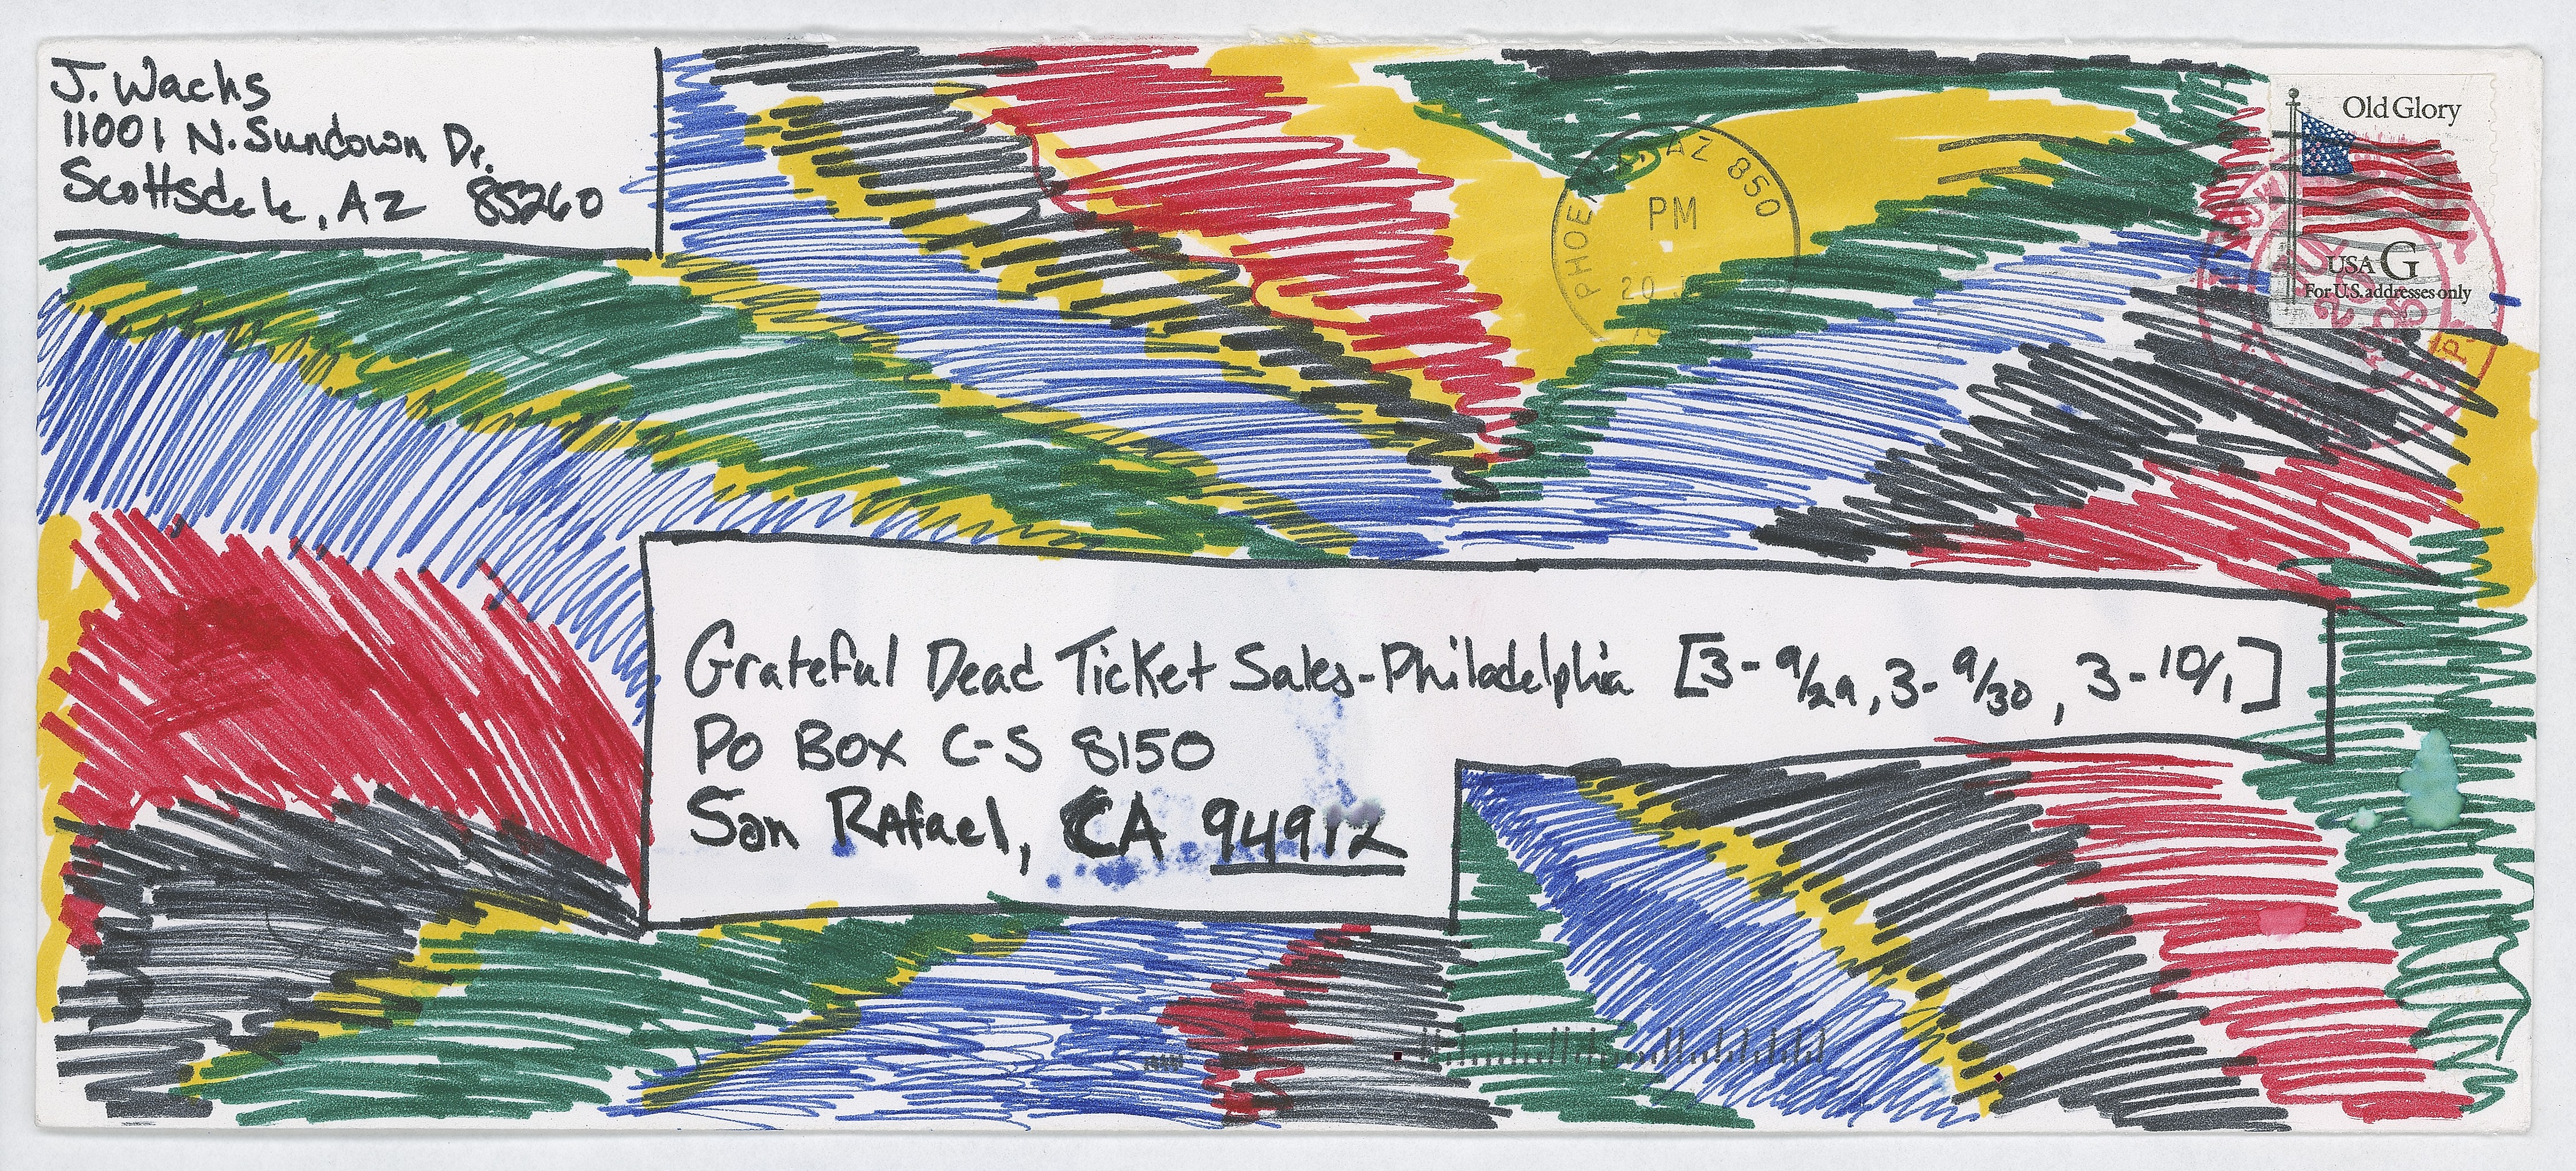 J. Wachs
11001 N. Sundown Dr.
Scottsdale, AZ 85260
Old Glory
USA G
For U.S. addresses only
AZ 850
PM
20
Grateful Dead Ticket Sales-Philadelphia [3-9/29, 3-9/30, 3-10/1]
PO Box C-S 8150
San Rafael, CA 94912